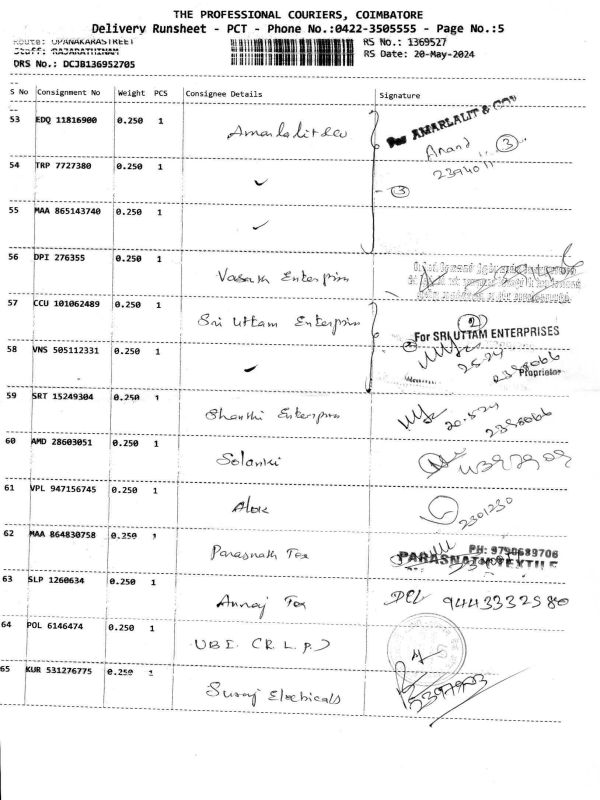 THE PROFESSIONAL COURIERS, COIMBATORE
Delivery Runsheet - PCT - Phone No.:0422-3505555 - Page No.:5
Route: OPANAKARASTREET
Staff: RAJARATHINAM
DRS No.: DCJB136952705
RS No.: 1369527
RS Date: 20-May-2024
S No Consignment No Weight PCS Consignee Details Signature
53 EDQ 11816900 0.250 1 Amarlalit & co For AMARLALIT & CO
Anand 3
2394011
54 TRP 7727380 0.250 1 ✓ - 3
55 MAA 865143740 0.250 1 ✓
56 DPI 276355 0.250 1 Vasath Enterprises
57 CCU 101062489 0.250 1 Sri Uttam Enterprises 2
For SRI UTTAM ENTERPRISES
58 VNS 505112331 0.250 1 ✓ 2398066
Proprietor
59 SRT 15249304 0.250 1 Shanthi Enterprises 20.5.24
2398066
60 AMD 28603051 0.250 1 Solanki
61 VPL 947156745 0.250 1 Alok 2301230
62 MAA 864830758 0.250 1 Parasnath Tex PH: 9790689706
PARASNATH TEXTILE
63 SLP 1260634 0.250 1 Annaj Tex 9443332580
64 POL 6146474 0.250 1 UBI (R.L.P.)
65 KUR 531276775 0.250 1 Suraj Electricals 2397903